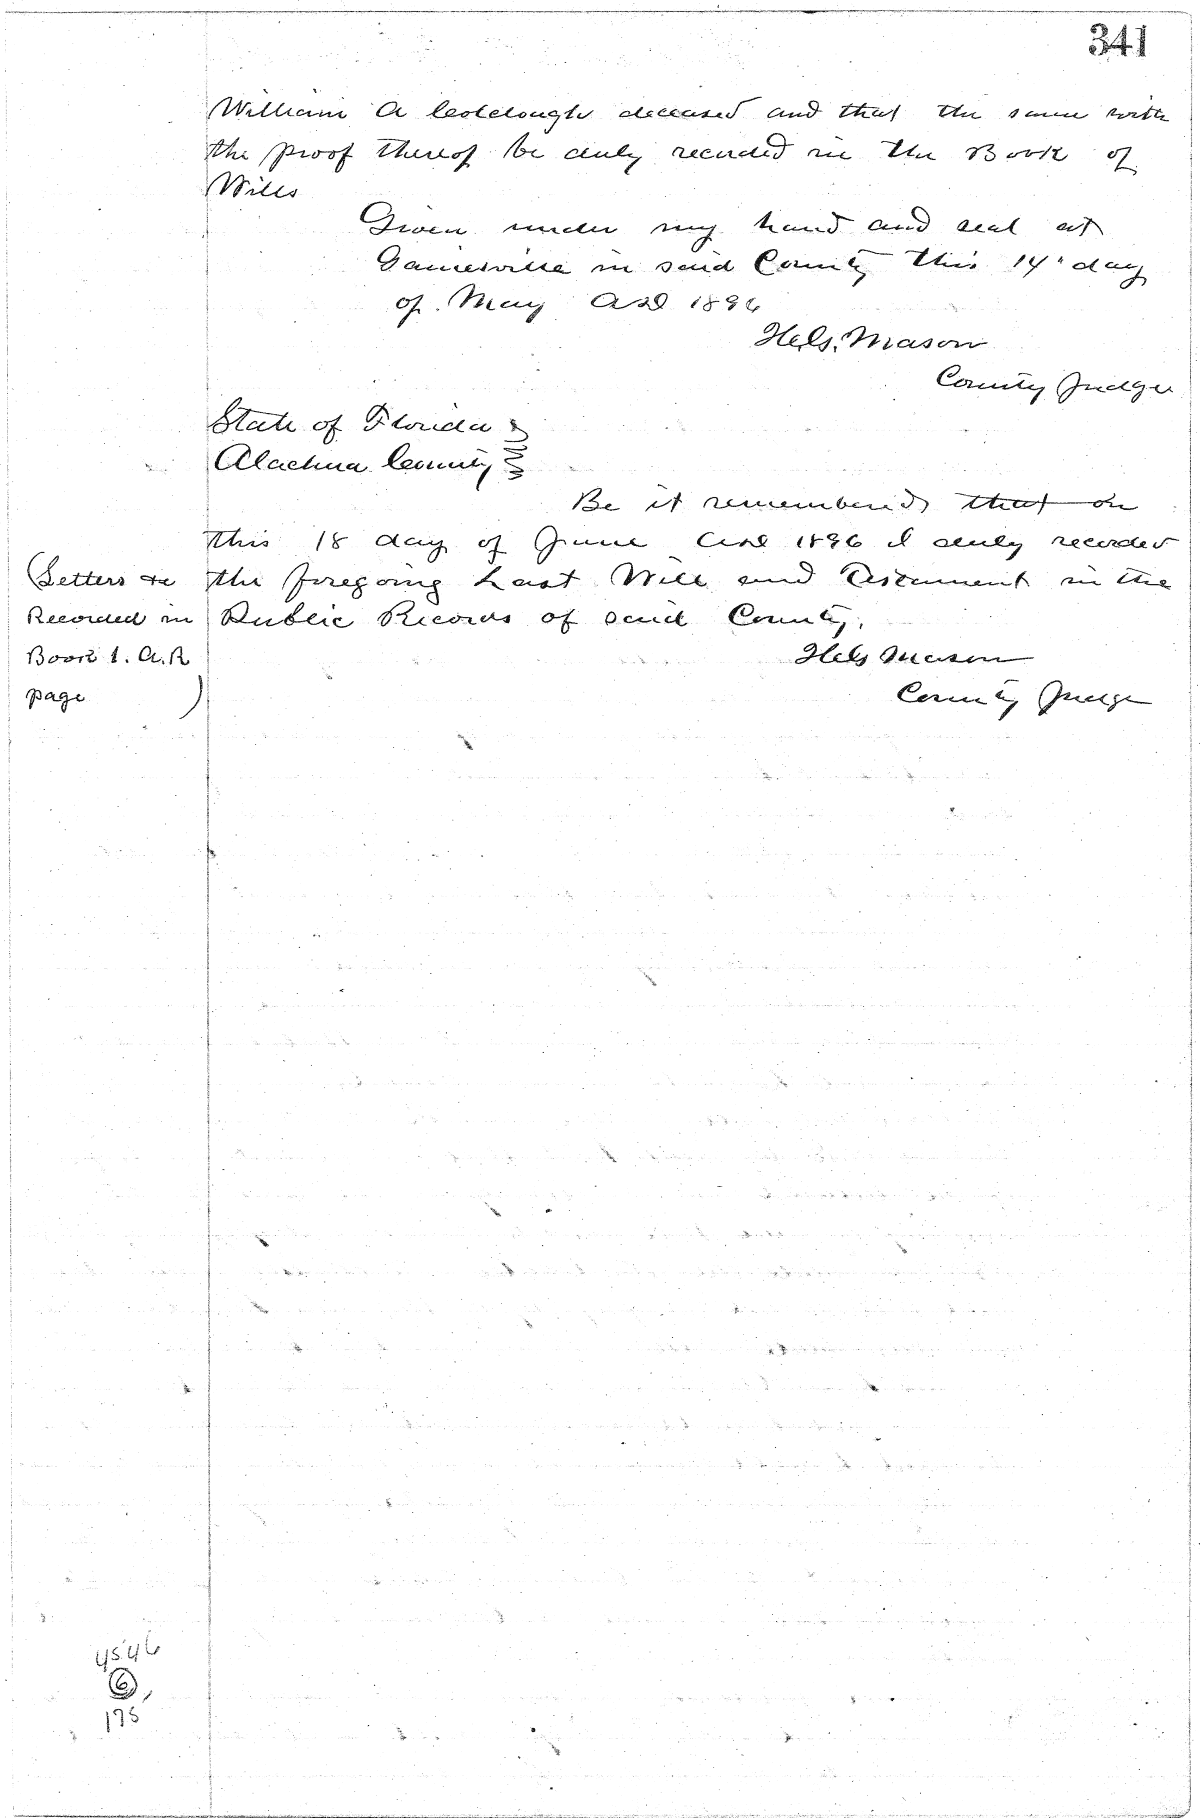 341
William A Colclough deceased and that the same with
the proof thereof be duly recorded in the Book of
Wills
Given under my hand and seal at
Gainesville in said County this 14" day
of May AD 1896
H.G. Mason
County Judge
State of Florida
Alachua County
Be it remembered that on
this 18 day of June AD 1896 I duly recorded
the foregoing Last Will and Testament in the
Public Records of said County.
H.G. Mason
County Judge
(Letters &c
Recorded in
Book 1. A.R
page )
4546
6
175